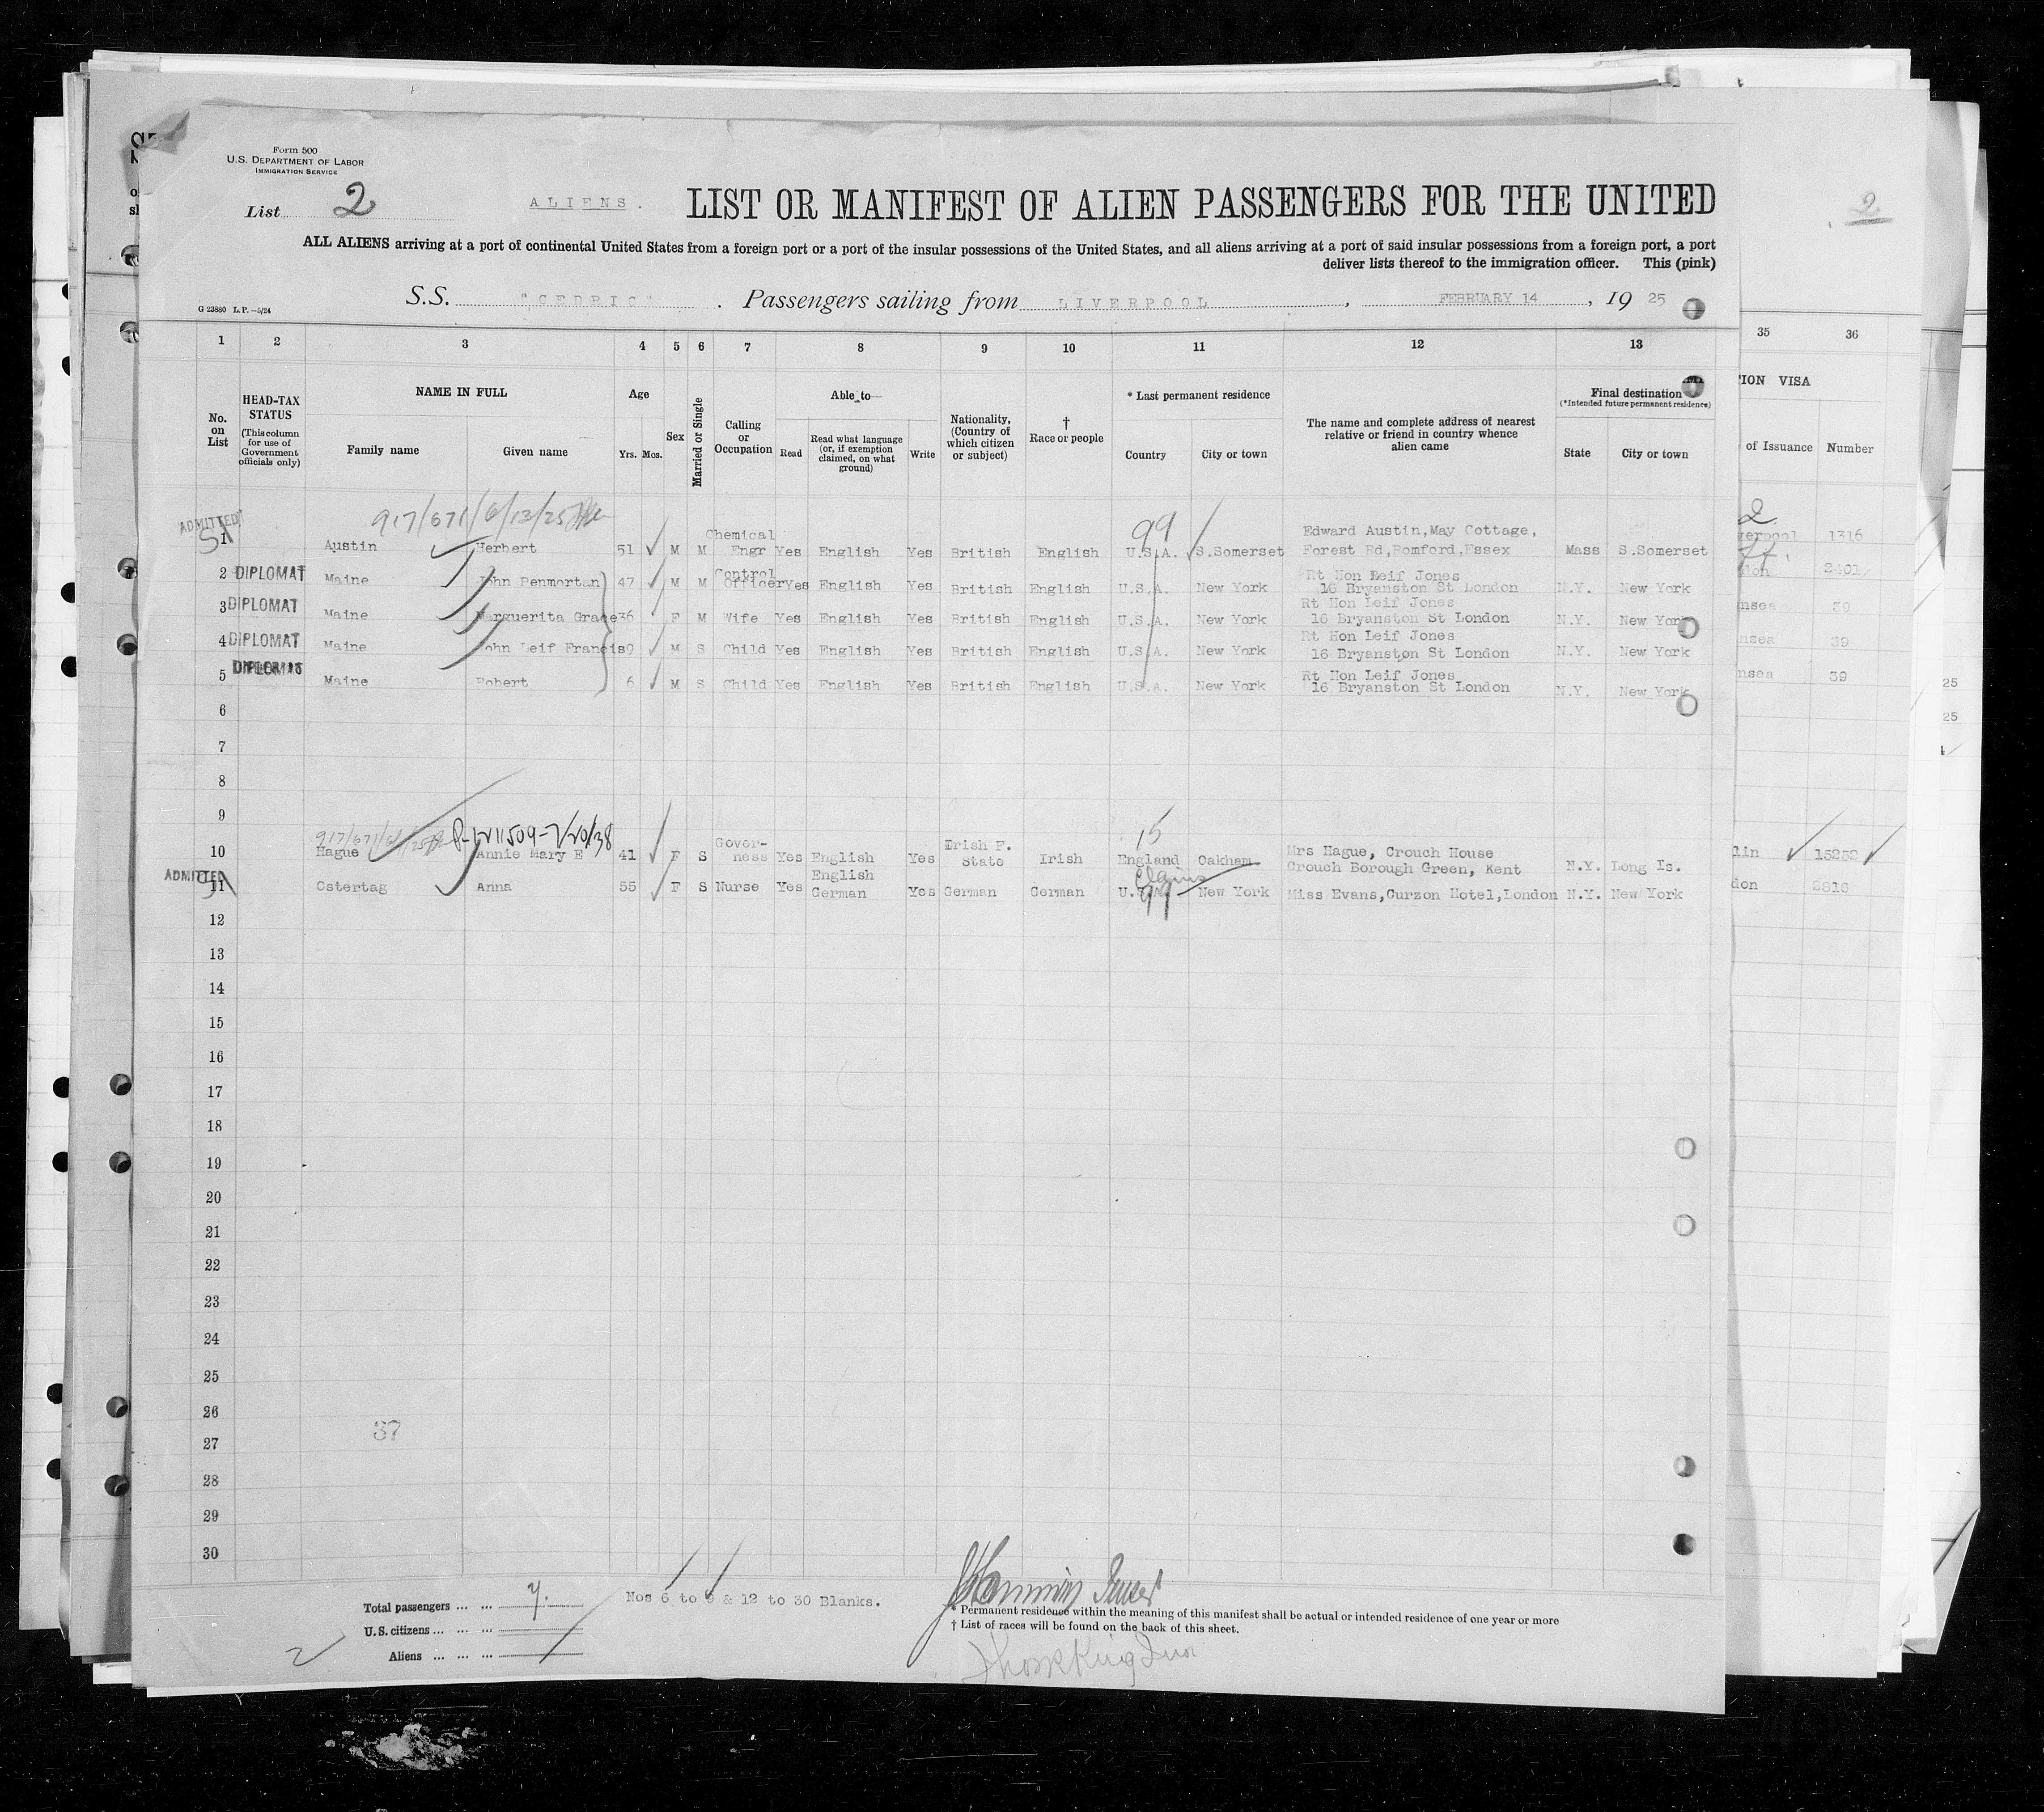 Form 500
U.S. DEPARTMENT OF LABOR
IMMIGRATION SERVICE
List 2
ALIENS.
LIST OR MANIFEST OF ALIEN PASSENGERS FOR THE UNITED
2
ALL ALIENS arriving at a port of continental United States from a foreign port or a port of the insular possessions of the United States, and all aliens arriving at a port of said insular possessions from a foreign port, a port
deliver lists thereof to the immigration officer. This (pink)
S.S. "CEDRIC". Passengers sailing from LIVERPOOL, FEBRUARY 14, 1925
G 23880 L.P.—5/24
1 2 3 4 5 6 7 8 9 10 11 12 13 35 36
No. on List
HEAD-TAX STATUS
(This column for use of Government officials only)
NAME IN FULL
Family name Given name
Age
Yrs. Mos.
Sex
Married or Single
Calling or Occupation
Able to—
Read
Read what language (or, if exemption claimed, on what ground)
Write
Nationality, (Country of which citizen or subject)
† Race or people
* Last permanent residence
Country City or town
The name and complete address of nearest relative or friend in country whence alien came
Final destination
(*Intended future permanent residence)
State City or town
ION VISA
of Issuance Number
917/671/6/13/25
ADMITTED
1 Austin Herbert 51 M M Chemical Engr Yes English Yes British English U.S.A. S.Somerset Edward Austin,May Cottage, Forest Rd,Romford,Essex Mass S.Somerset 1316
99
2 DIPLOMAT Maine John Penmortan 47 M M Control Officer Yes English Yes British English U.S.A. New York Rt Hon Leif Jones 16 Bryanston St London N.Y. New York 2401
3 DIPLOMAT Maine Marguerita Grace 36 F M Wife Yes English Yes British English U.S.A. New York Rt Hon Leif Jones 16 Bryanston St London N.Y. New York nsea 39
4 DIPLOMAT Maine John Leif Francis 9 M S Child Yes English Yes British English U.S.A. New York Rt Hon Leif Jones 16 Bryanston St London N.Y. New York nsea 39
5 DIPLOMAT Maine Robert 6 M S Child Yes English Yes British English U.S.A. New York Rt Hon Leif Jones 16 Bryanston St London N.Y. New York nsea 39
25
6
25
7
8
9
15
10 Hague Annie Mary E 41 F S Governess Yes English Yes Irish F. State Irish England Oakham Mrs Hague, Crouch House Crouch Borough Green, Kent N.Y. Long Is. lin 15252
ADMITTED
11 Ostertag Anna 55 F S Nurse Yes English German Yes German German U. New York Miss Evans,Curzon Hotel,London N.Y. New York don 2816
Claims
99
12
13
14
15
16
17
18
19
20
21
22
23
24
25
26
37
27
28
29
30
Total passengers ... ... 7.
Nos 6 to 9 & 12 to 30 Blanks.
U.S. citizens ... ... ...
Aliens ... ... ...
* Permanent residence within the meaning of this manifest shall be actual or intended residence of one year or more
† List of races will be found on the back of this sheet.